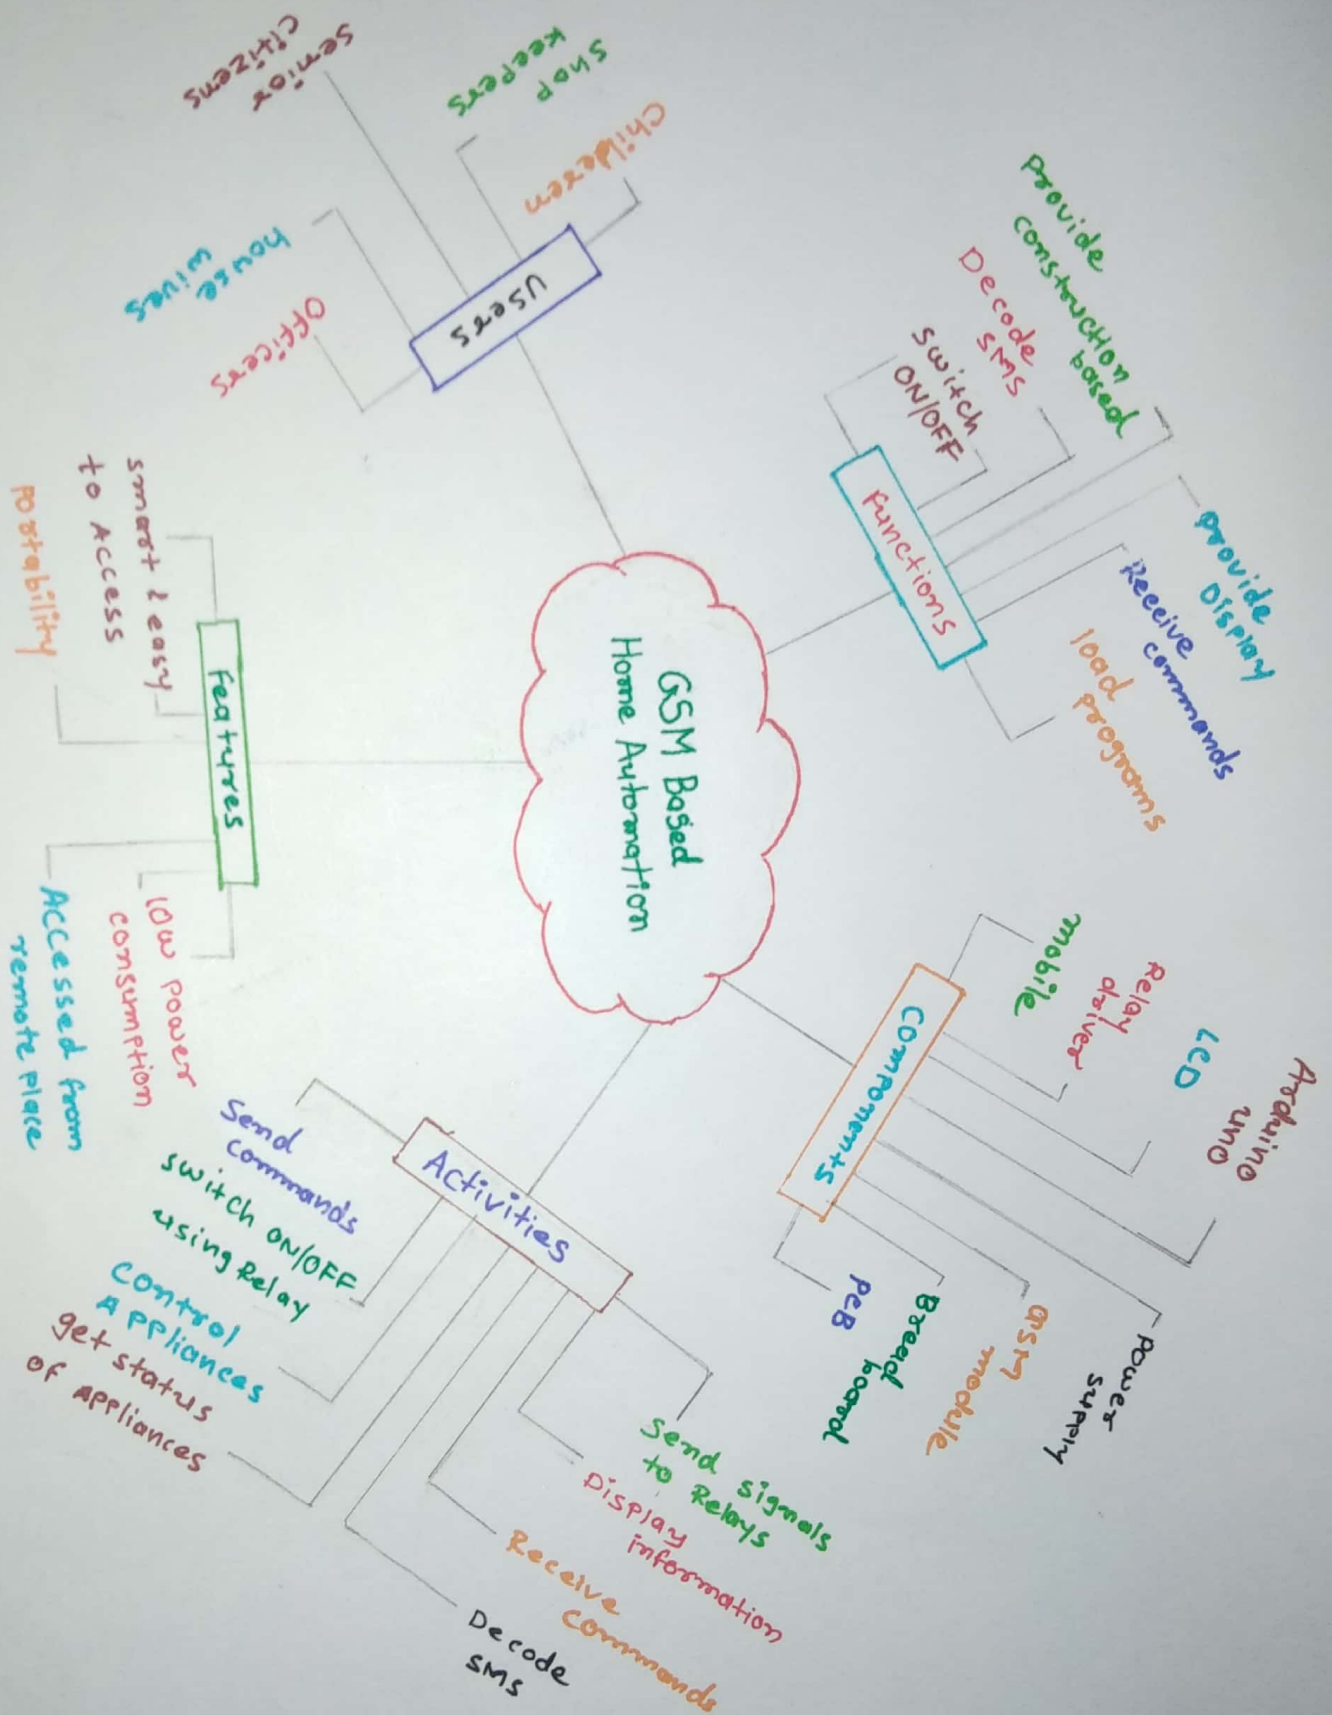 GSM Based
Home Automation
Users
senior
citizens
shop
keepers
childeren
house
wives
officers
Functions
provide
construction
based
Decode
SMS
switch
ON/OFF
provide
Display
Receive
commands
load
programs
Components
mobile
Relay
driver
LCD
Arduino
uno
power
supply
GSM
module
Bread
board
PCB
Activities
Send
commands
switch ON/OFF
using Relay
control
Appliances
get status
of Appliances
Decode
SMS
Receive
commands
Display
information
Send signals
to Relays
Features
smart & easy
to Access
portability
low power
consumption
Accessed from
remote place